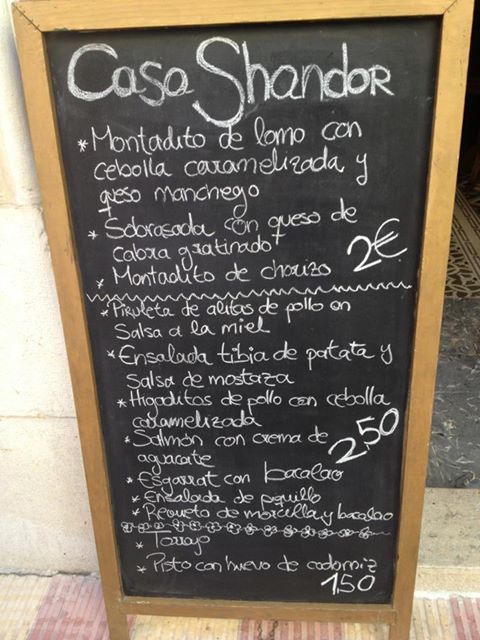 Casa Shandor
* Montadito de lomo con
cebolla caramelizada y
queso manchego
* Sobrasada con queso de
cabra gratinado
2€
* Montadito de chorizo
* Piruleta de alitas de pollo en
Salsa a la miel
* Ensalada tibia de patata y
Salsa de mostaza
* Higaditos de pollo con cebolla
caramelizada
2,50
* Salmón con crema de
aguacate
* Esgarrat con bacalao
* Ensalada de piquillo
* Reqveto de morcilla y bacalao
* Torrijo
* Pisto con huevo de codorniz
1,50